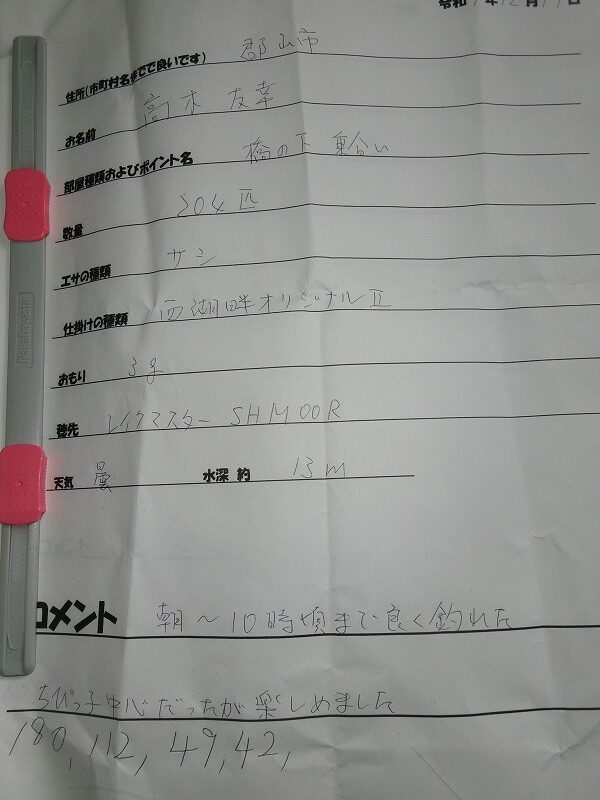 令和 年12月17日
住所(市町村名までで良いです) 郡山市
お名前 高木 友幸
部屋種類およびポイント名 橋の下 乗合い
数量 304匹
エサの種類 サシ
仕掛けの種類 西湖畔オリジナルⅡ
おもり 3g
穂先 レイクマスター SHM00R
天気 曇 水深 約 13m
コメント 朝〜10時頃まで良く釣れた
ちびっ子中心だったが楽しめました
180, 112, 49, 42,